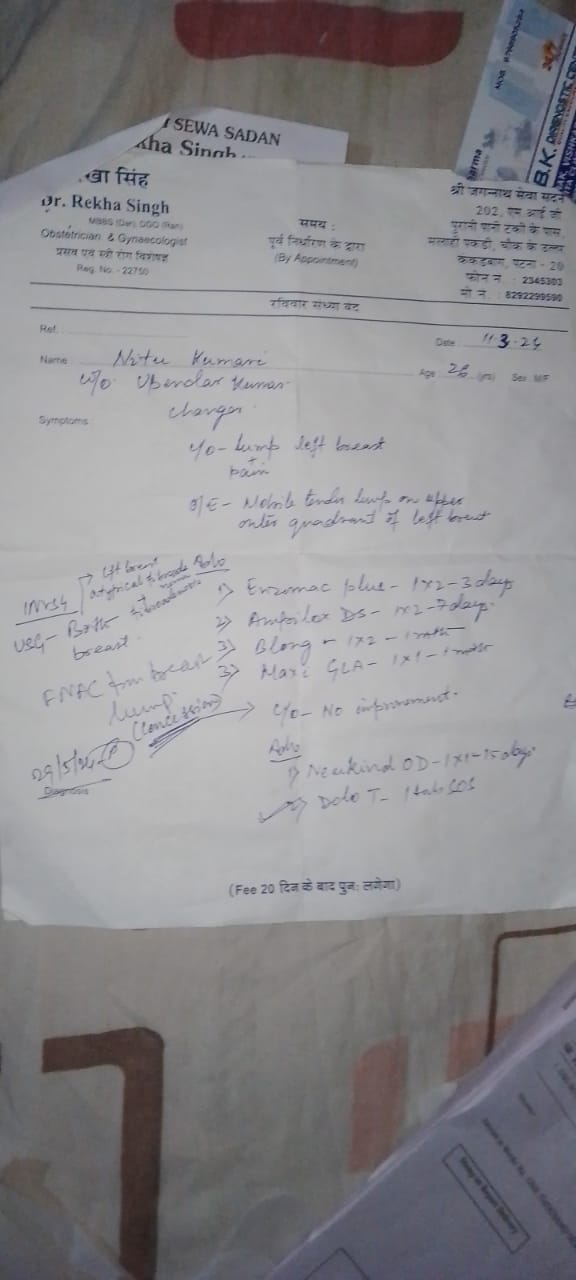 SEWA SADAN
kha Singh
MOB. 9798901094
24x7
arma
B.K. DIAGNOSTIC CEN
खा सिंह
Dr. Rekha Singh
MBBS (Dar), DGO (Ran)
Obstetrician & Gynaecologist
प्रसव एवं स्त्री रोग विशेषज्ञ
Reg. No. - 22750
समय :
पूर्व निर्धारण के द्वारा
(By Appointment)
श्री जगन्नाथ सेवा सदन
202, एम आई जी
पुरानी पानी टंकी के पास,
मलाही पकड़ी, चौक के उत्तर
कंकड़बाग, पटना - 20
फोन नं. : 2345303
मो नं. : 8292299590
रविवार संध्या बंद
Ref. :
Date 11.3.24
Name : Nitu Kumari
Age 26 (yrs) Sex M/F
W/o Upendar Kumar
Symptoms
changes
c/o - Lump left breast
+
pain
O/E - Mobile tender lump on upper
outer quadrant of left breast
Left breast
INVSG
Adv
USG - Both
breast.
1) Enzomac plus - 1x2 - 3 days
2) Ampilox DS - 1x2 - 7 days
3) Blong - 1x2 - 1 mth
3) Maxi GLA - 1x1 - 1 mth
FNAC from breast
lump
(Concession)
c/o - No improvement.
29/5/24
Diagnosis
Adv
1) Neukind OD - 1x1 - 15 days
2) Dolo T - 1 tab SOS
(Fee 20 दिन के बाद पुन: लगेगा)